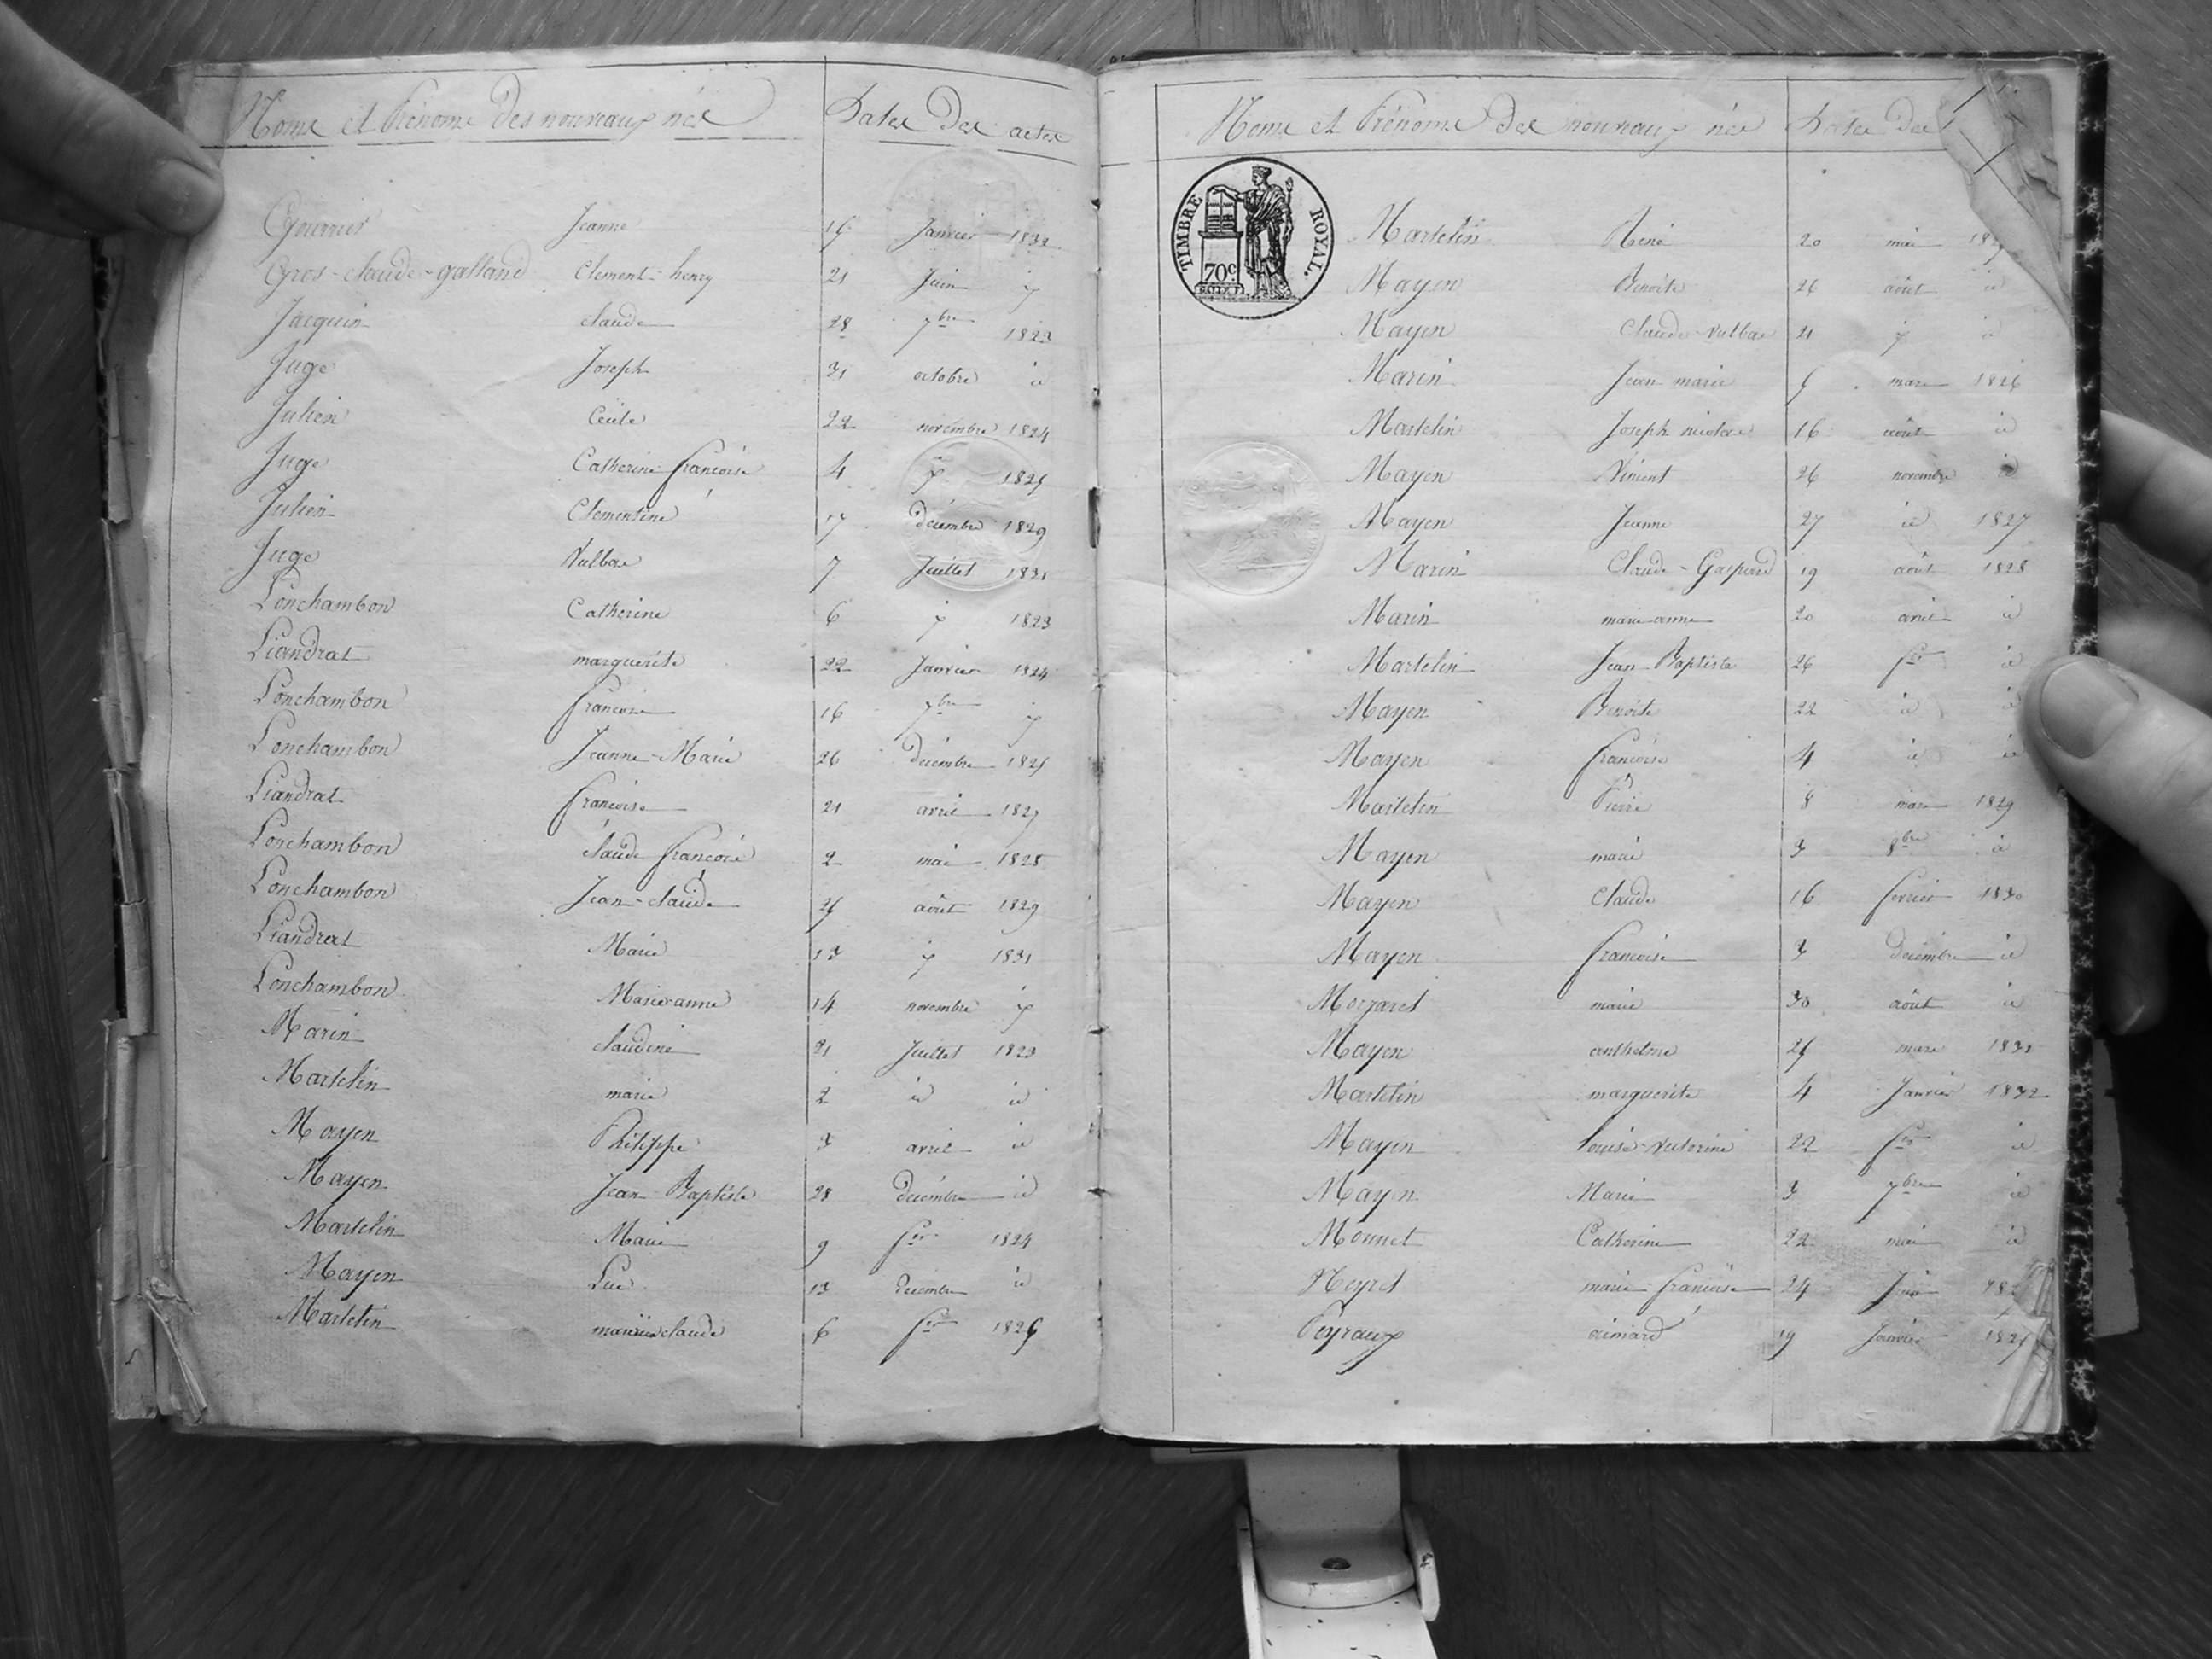 Noms et Prénoms des nouveaux nés Dates des actes
Jeanne Janvier 1832
Gros-claude-galland Clement-henry 21 Juin
Jacquin claude 28 7bre 1823
Juge Joseph 31 octobre id
Julien Cécile 22 novembre 1824
Juge Catherine françoise 4 1825
Julien Clementine 17 décembre 1829
Juge Vulbas 7 Juillet 1831
Lonchambon Catherine 6 1823
Liandrat marguerite 22 Janvier 1824
Lonchambon françoise 16 7bre
Lonchambon Jeanne-Marie 26 décembre 1825
Liandrat françoise 21 avril 1827
Lonchambon claude françois 2 mai 1828
Lonchambon Jean-claude 25 août 1829
Liandrat Marie 13 1831
Lonchambon Marie-anne 14 novembre
Marin claudine 21 Juillet 1823
Martelin marie 2 id id
Mayen Philippe 3 avril id
Mayen Jean Baptiste 28 décembre id
Martelin Marie 9 fer 1824
Mayen Luc 13 décembre id
Martelin claude 6 fer
Noms et Prénoms des nouveaux nés Dates des
TIMBRE ROYAL.
70c
Martelin René 20 mai
Mayen Benoîte 26 août id
Mayen Claude-Vulbas 21 id
Marin Jean marie 5 mars 1826
Martelin Joseph nicolas 16 août id
Mayen Vincent 26 novembre id
Mayen Jeanne 27 id 1827
Marin Claude-Gaspard 19 août 1828
Marin marie-anne 20 avril id
Martelin Jean-Baptiste 26 fer id
Mayen Benoîte 22 id id
Mayen françoise 4 id id
Martelin Pierre 8 mars 1829
Mayen marie 3 8bre id
Mayen Claude 16 fevrier 1830
Mayen françoise 3 décembre id
marie 30 août id
Mayen anthelme 25 mars 1831
Martelin marguerite 4 Janvier 1832
Mayen louise-victorine 22 fer id
Mayen Marie 3 7bre id
Monnet Catherine 22 mai id
Neyret marie-françoise 24
Peyraux aimard 19 Janvier